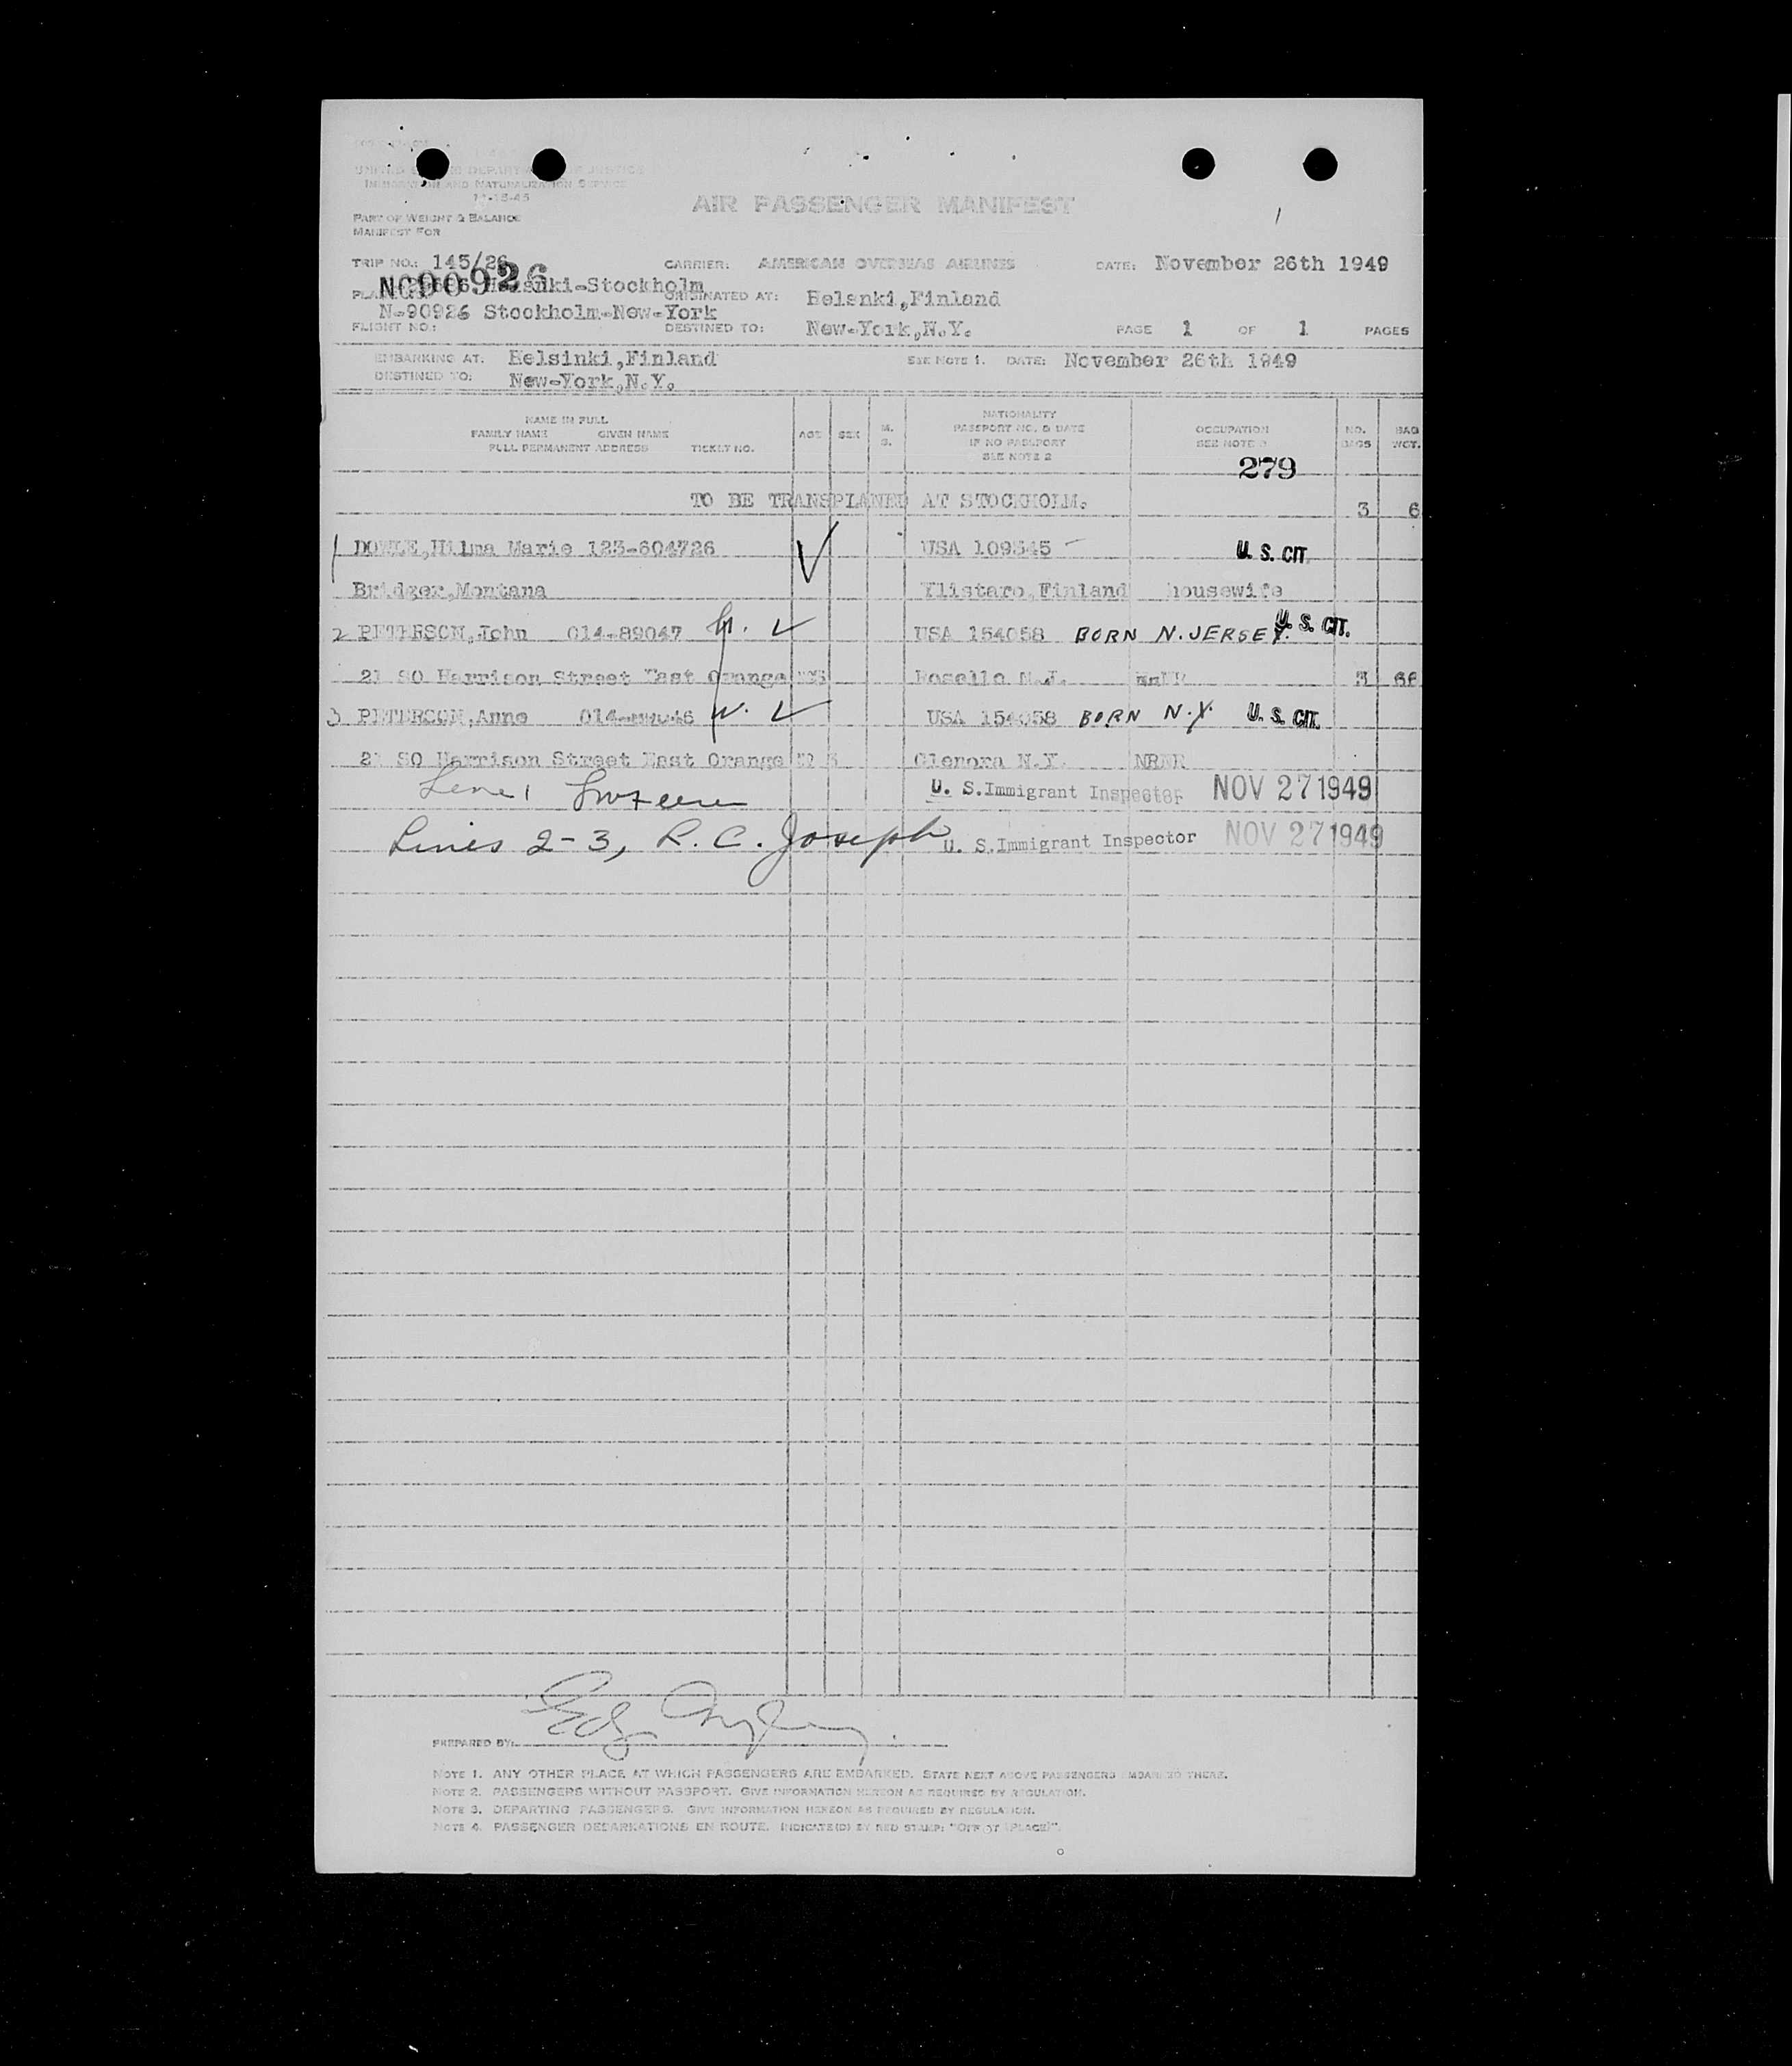 UNITED DEPARTMENT OF JUSTICE
IMMIGRATION AND NATURALIZATION SERVICE
11-15-45
AIR PASSENGER MANIFEST
PART OF WEIGHT & BALANCE
MANIFEST FOR
TRIP NO.: 145/26 CARRIER: AMERICAN OVERSEAS AIRLINES DATE: November 26th 1949
NC90926 Helsinki-Stockholm ORIGINATED AT: Helsnki,Finland
N-90926 Stockholm-New-York
FLIGHT NO.: DESTINED TO: New-York,N.Y. PAGE 1 OF 1 PAGES
EMBARKING AT: Helsinki,Finland SEE NOTE 1. DATE: November 26th 1949
DESTINED TO: New-York,N.Y.
NAME IN FULL
FAMILY NAME GIVEN NAME
FULL PERMANENT ADDRESS TICKET NO.
AGE SEX M. S.
NATIONALITY
PASSPORT NO. & DATE
IF NO PASSPORT
SEE NOTE 2
OCCUPATION
SEE NOTE 3
NO. BAGS
BAG WGT.
279
TO BE TRANSPLANED AT STOCKHOLM. 3 6
1 Hilma Marie 123-604726 USA 109345 U. S. CIT.
Bridger,Montana Ylistaro,Finland housewife
2 PETERSON,John 014-89047 USA 154058 BORN N. JERSEY. U. S. CIT.
21 SO Harrison Street East Orange Roselle N.J. 3 66
3 PETERSON,Anne USA 154058 BORN N.Y. U. S. CIT.
21 SO Harrison Street East Orange Glenora N.Y.
Line 1 U. S.Immigrant Inspector NOV 27 1949
Lines 2-3, R. C. Joseph U. S.Immigrant Inspector NOV 27 1949
PREPARED BY:
NOTE 1. ANY OTHER PLACE AT WHICH PASSENGERS ARE EMBARKED. STATE NEXT ABOVE PASSENGERS EMBARKED THERE.
NOTE 2. PASSENGERS WITHOUT PASSPORT. GIVE INFORMATION HEREON AS REQUIRED BY REGULATION.
NOTE 3. DEPARTING PASSENGERS. GIVE INFORMATION HEREON AS REQUIRED BY REGULATION.
NOTE 4. PASSENGER DEBARKATIONS EN ROUTE. INDICATE(D) BY RED STAMP: "OFF AT (PLACE)".